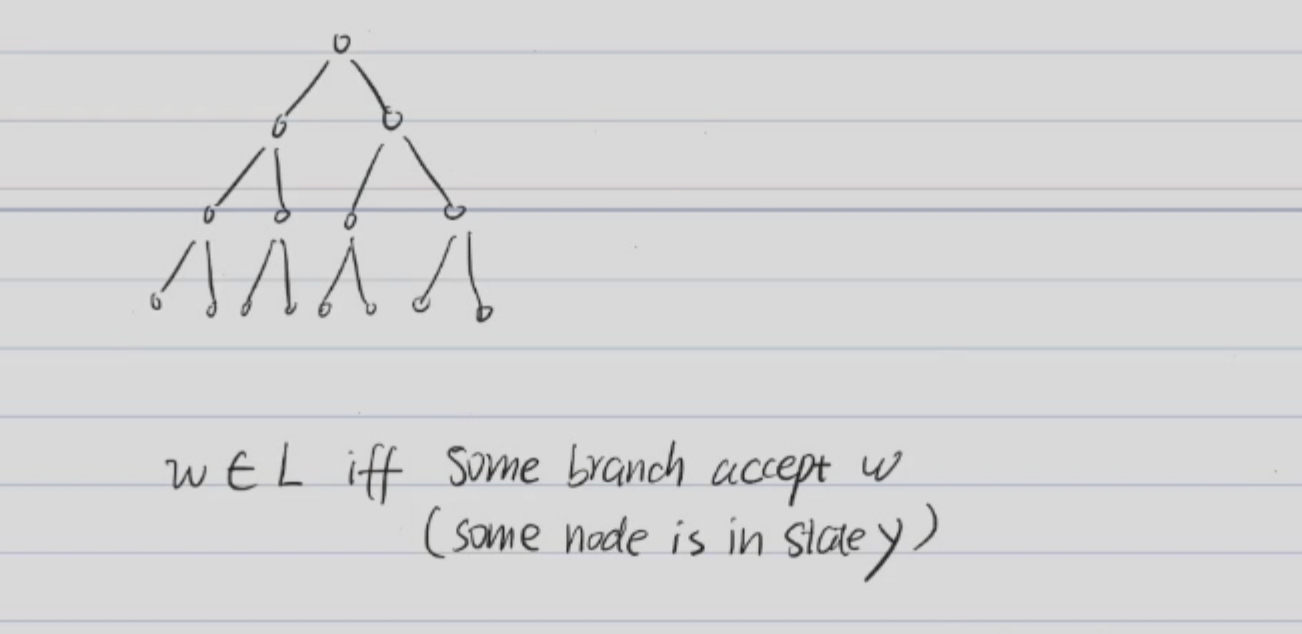 w ∈ L iff some branch accept w
(some node is in state y)